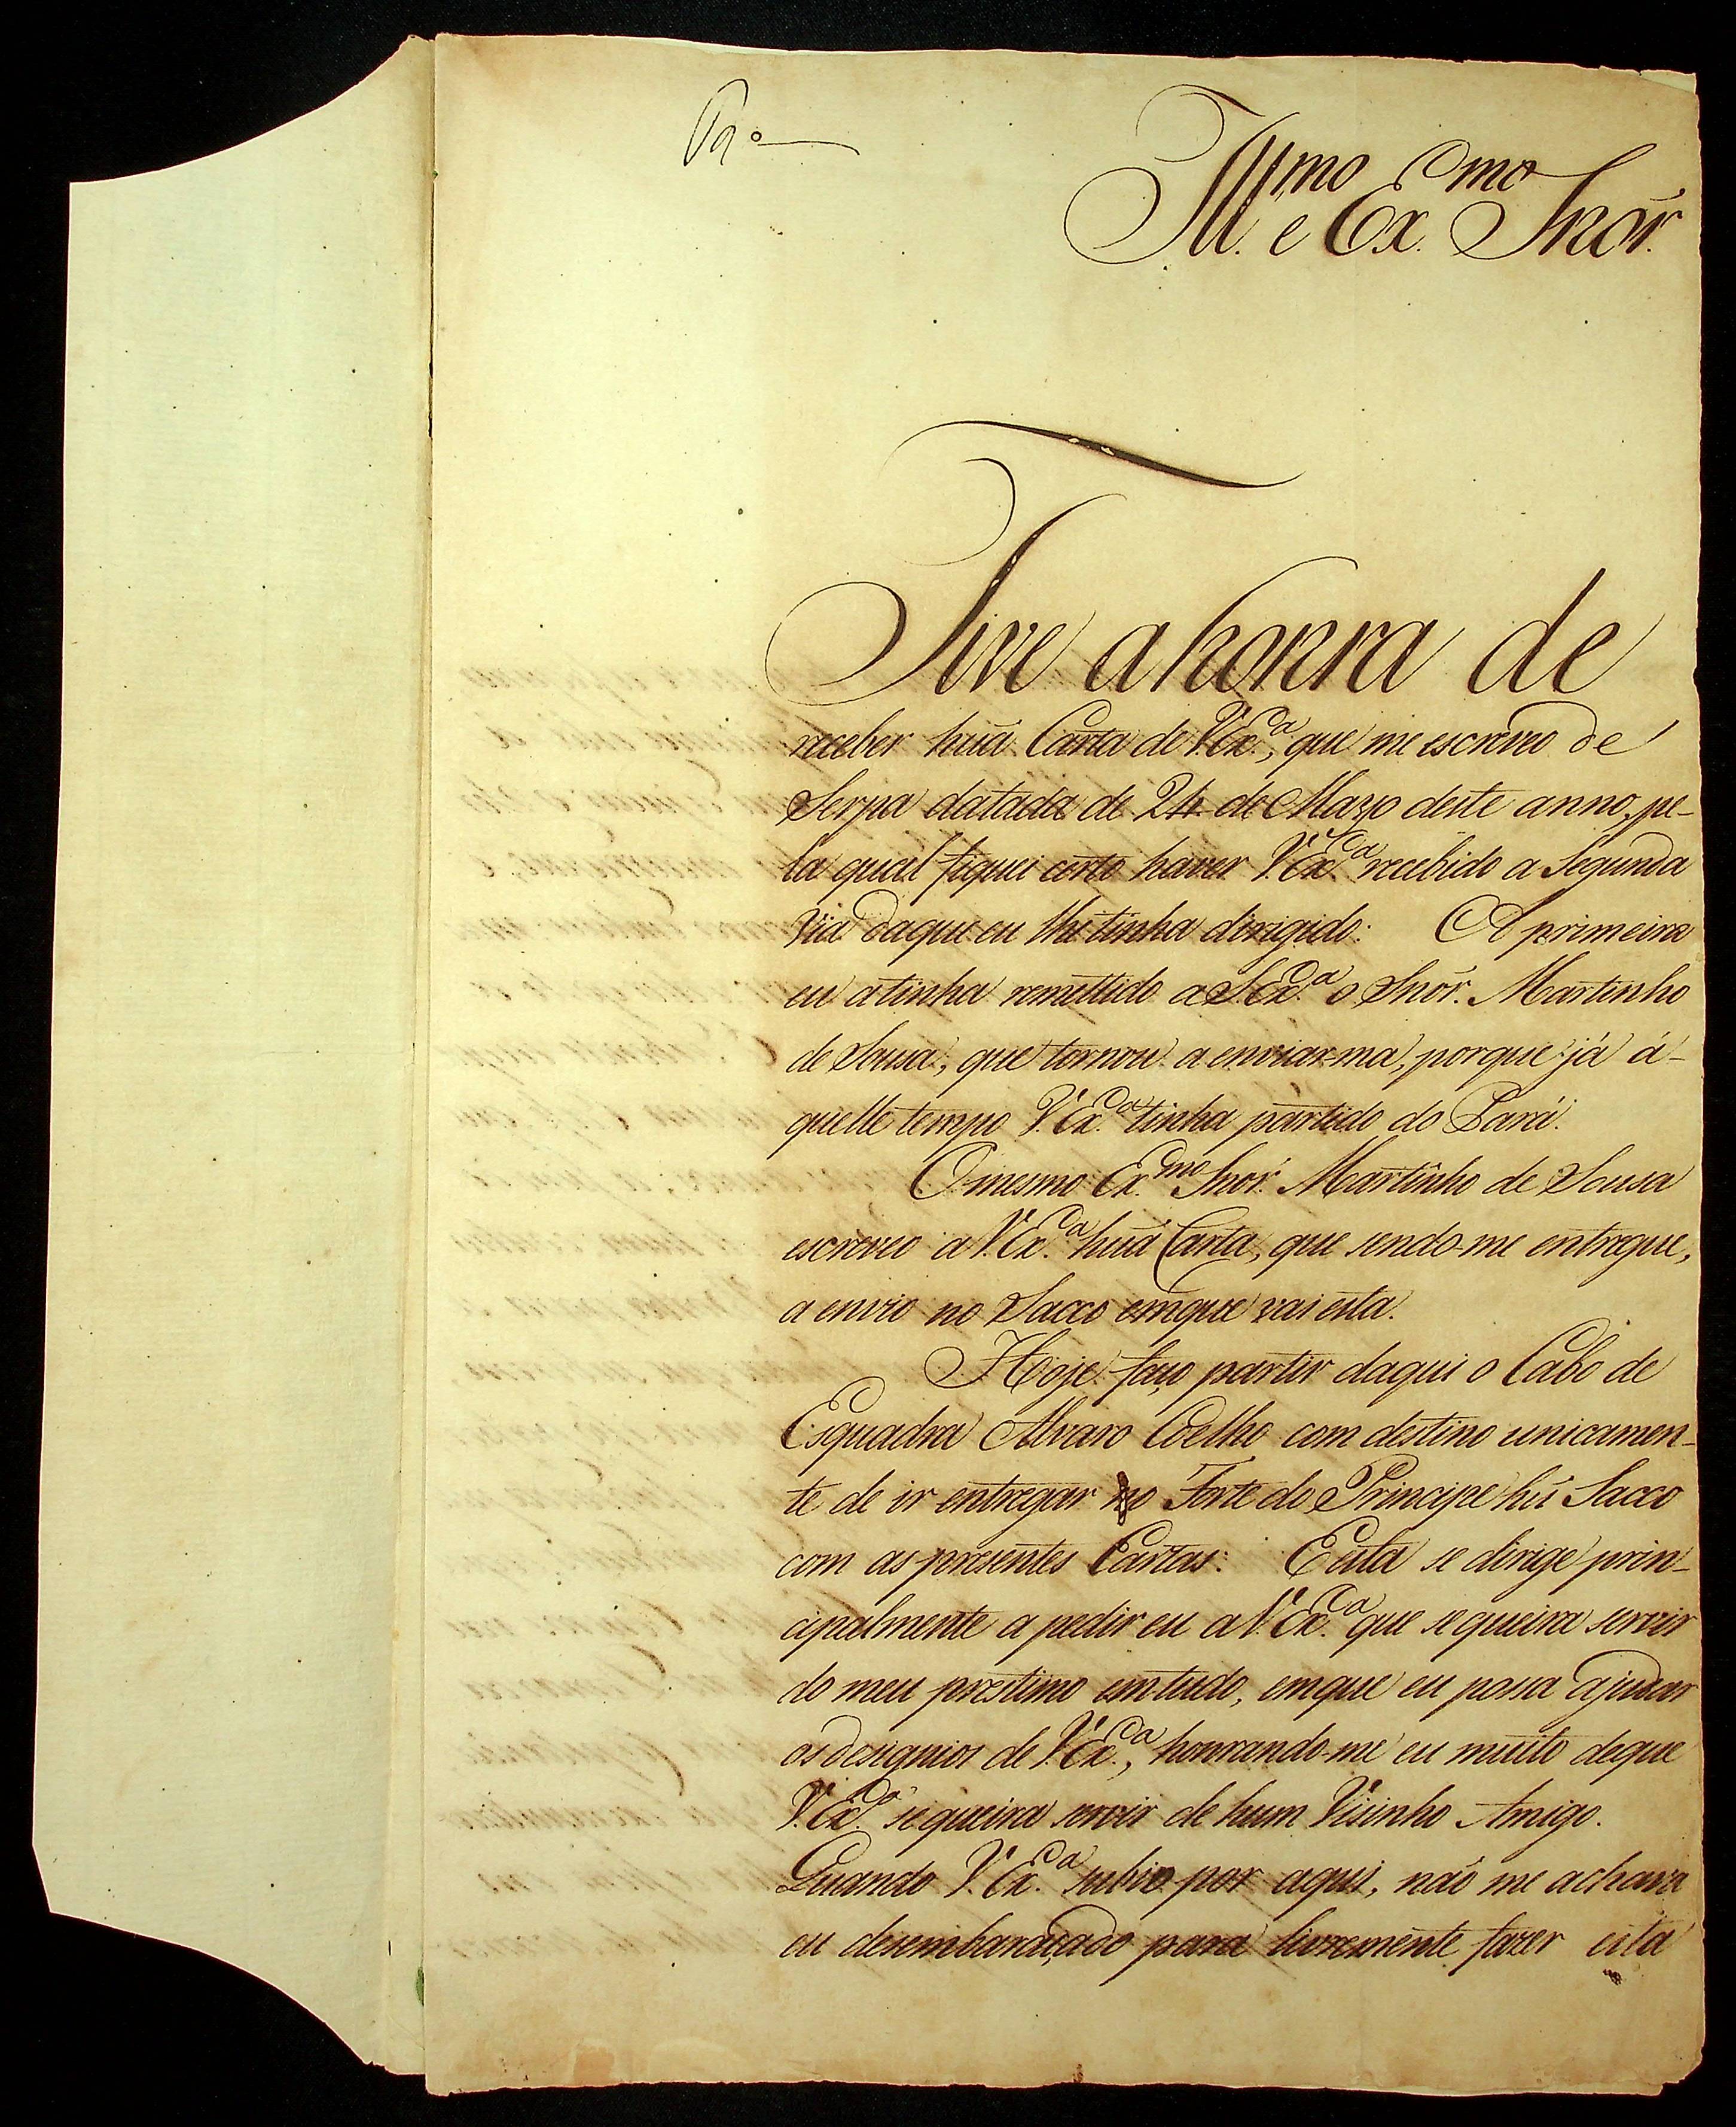 Ill.mo e Ex.mo Snõr.
Tive a honra de
receber huã Carta de V.Ex.ca, que me escreveo de
Serpa datada de 24 de Março deste anno, pe-
la qual fiquei certo haver V.Ex.ca recebido a Segunda
via daque eu lhe tinha dirigido: A primeira
eu atinha remettido a S.Ex.ca o Snõr. Martinho
de Sousa, que tornou a enviar-ma, porque já á-
quelle tempo V.Ex.ca tinha partido do Pará.
O mesmo Ex.mo Snõr. Martinho de Sousa
escreveo a V.Ex.ca huã Carta, que sendo-me entregue,
a envio no Sacco emque vai esta.
Hoje faço partir daqui o Cabo de
Esquadra Alvaro Coelho com destino unicamen-
te de ir entregar no Forte do Principe hũ Sacco
com as presentes Cartas: Esta se dirige prin-
cipalmente a pedir eu a V.Ex.ca que se queira servir
do meu prestimo em tudo, emque eu possa ajudar
os designios de V.Ex.ca, honrando-me eu muito deque
V.Ex.ca se queira servir de hum Visinho Amigo.
Quando V.Ex.ca subio por aqui, não me achava
eu desembaraçado para livremente fazer esta